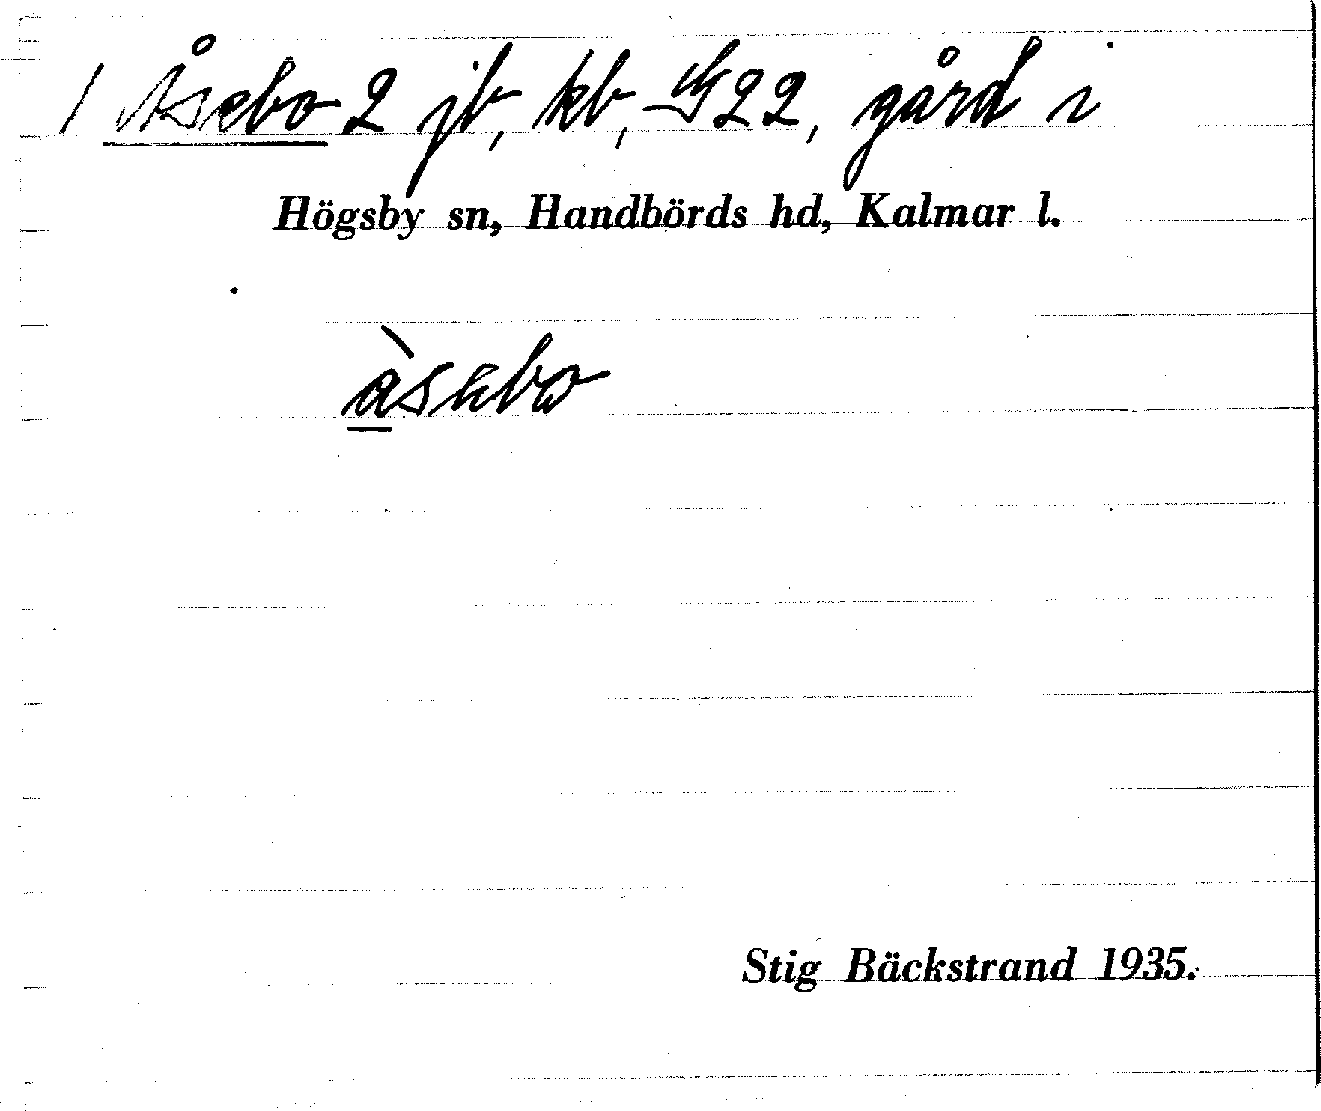 1 Åsebo 2 jb, kb, G22, gård i
Högsby sn, Handbörds hd, Kalmar l.
àsebo
Stig Bäckstrand 1935.